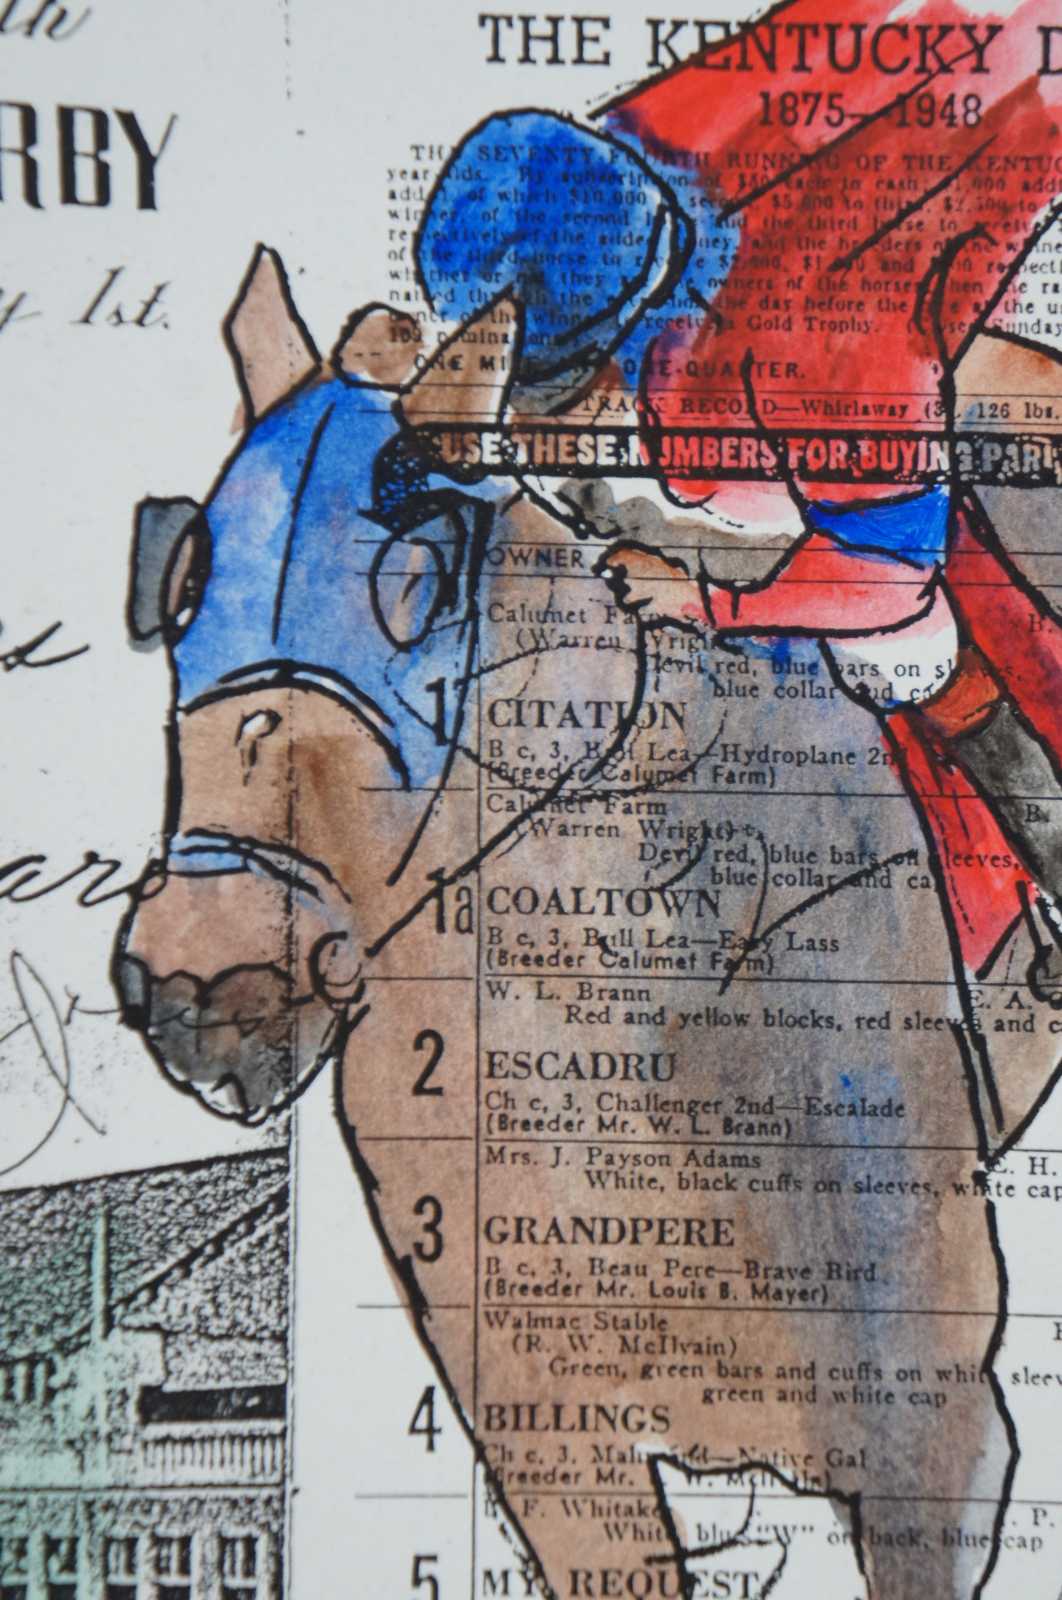 th
RBY
y 1st.
THE KENTUCKY D
1875—1948
THE SEVENTY-FOURTH RUNNING OF THE KENTUC
year olds. By subscription of $50 each in cash, $1,000 add
added, of which $10,000 to second, $5,000 to third, $2,500 to
winner, of the second horse and the third horse to receive
respectively of the added money, and the breeders of the winne
of the third horse to receive $2,000, $1,000 and $500 respecti
whether or not they are the owners of the horses when the ra
named through the entries the day before the race at the u
owner of the winner to receive a Gold Trophy. Closed Sunday
109 nominations.
ONE MILE AND ONE-QUARTER.
TRACK RECORD—Whirlaway (3), 126 lbs.
USE THESE NUMBERS FOR BUYING PARI
OWNER
Calumet Farm
(Warren Wright)
Devil red, blue bars on sleeves,
blue collar and cap
1 CITATION
B c, 3, Bull Lea—Hydroplane 2nd
(Breeder Calumet Farm)
Calumet Farm
(Warren Wright)
Devil red, blue bars on sleeves,
blue collar and cap
1a COALTOWN
B c, 3, Bull Lea—Easy Lass
(Breeder Calumet Farm)
W. L. Brann E. A.
Red and yellow blocks, red sleeves and c
2 ESCADRU
Ch c, 3, Challenger 2nd—Escalade
(Breeder Mr. W. L. Brann)
Mrs. J. Payson Adams E. H.
White, black cuffs on sleeves, white cap
3 GRANDPERE
B c, 3, Beau Pere—Brave Bird
(Breeder Mr. Louis B. Mayer)
Walmac Stable
(R. W. McIlvain)
Green, green bars and cuffs on white sleev
green and white cap
4 BILLINGS
Ch c, 3, Mahmoud—Native Gal
(Breeder Mr. R. W. McIlvain)
B. F. Whitaker P.
White, blue "W" on back, blue cap
5 MY REQUEST